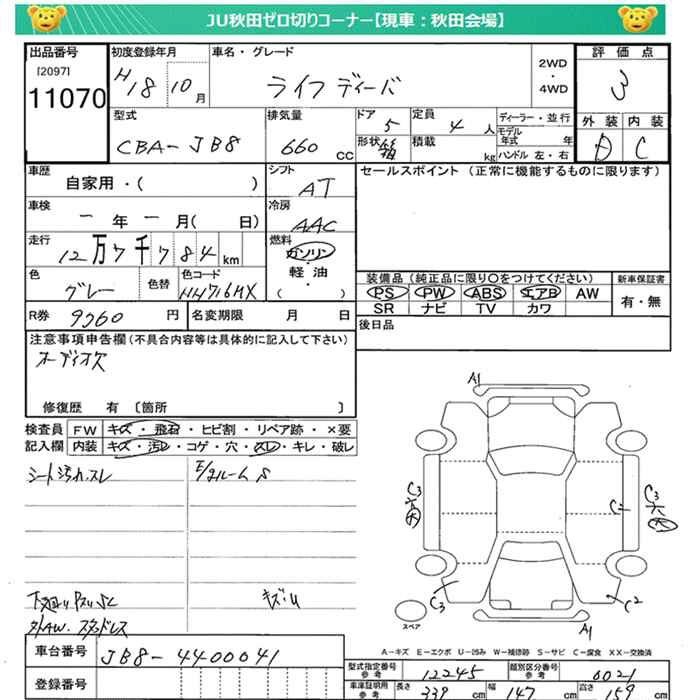 JU秋田ゼロ切りコーナー【現車：秋田会場】
出品番号 [2097] 11070
初度登録年月 H18 10月
車名・グレード ライフ ディーバ
2WD・4WD
評価点 3
外装 D 内装 C
型式 CBA-JB8
排気量 660 CC
ドア 5
形状 箱
定員 4 人
積載 kg
ディーラー・並行
モデル年式 年
ハンドル 左・右
車歴 自家用・( )
シフト AT
セールスポイント(正常に機能するものに限ります)
車検 ー年ー月( 日)
冷房 AAC
走行 12万7千784km
燃料 ガソリン・軽油・( )
色 グレー
色替
色コード NH716MX
装備品(純正品に限り○をつけてください)
PS PW ABS エアB AW
SR ナビ TV カワ
新車保証書 有・無
R券 9360 円
名変期限 月 日
後日品
注意事項申告欄(不具合内容等は具体的に記入して下さい)
オーディオ欠
修復歴 有 〔箇所 〕
検査員記入欄
FW キズ・飛石・ヒビ割・リペア跡・×要
内装 キズ・汚レ・コゲ・穴・スレ・キレ・破レ
シート汚れ、スレ
E/gルーム S
キズ・U
A1
C3
C2
C3
C3
C2
A1
スペア
A-キズ E-エクボ U-凹み W-補修跡 S-サビ C-腐食 XX-交換済
車台番号 JB8-4400041
登録番号
型式指定番号参考 12245
類別区分番号参考 0021
車庫証明用参考 長さ 339 cm 幅 147 cm 高さ 159 cm